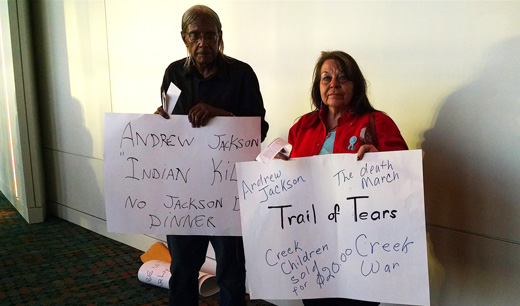 ANDREW JACKSON
"INDIAN KIL
NO JACKSON
DINNER
Andrew
Jackson
The death
March
Trail of Tears
Creek
Children
sold
for $20.00
Creek
War